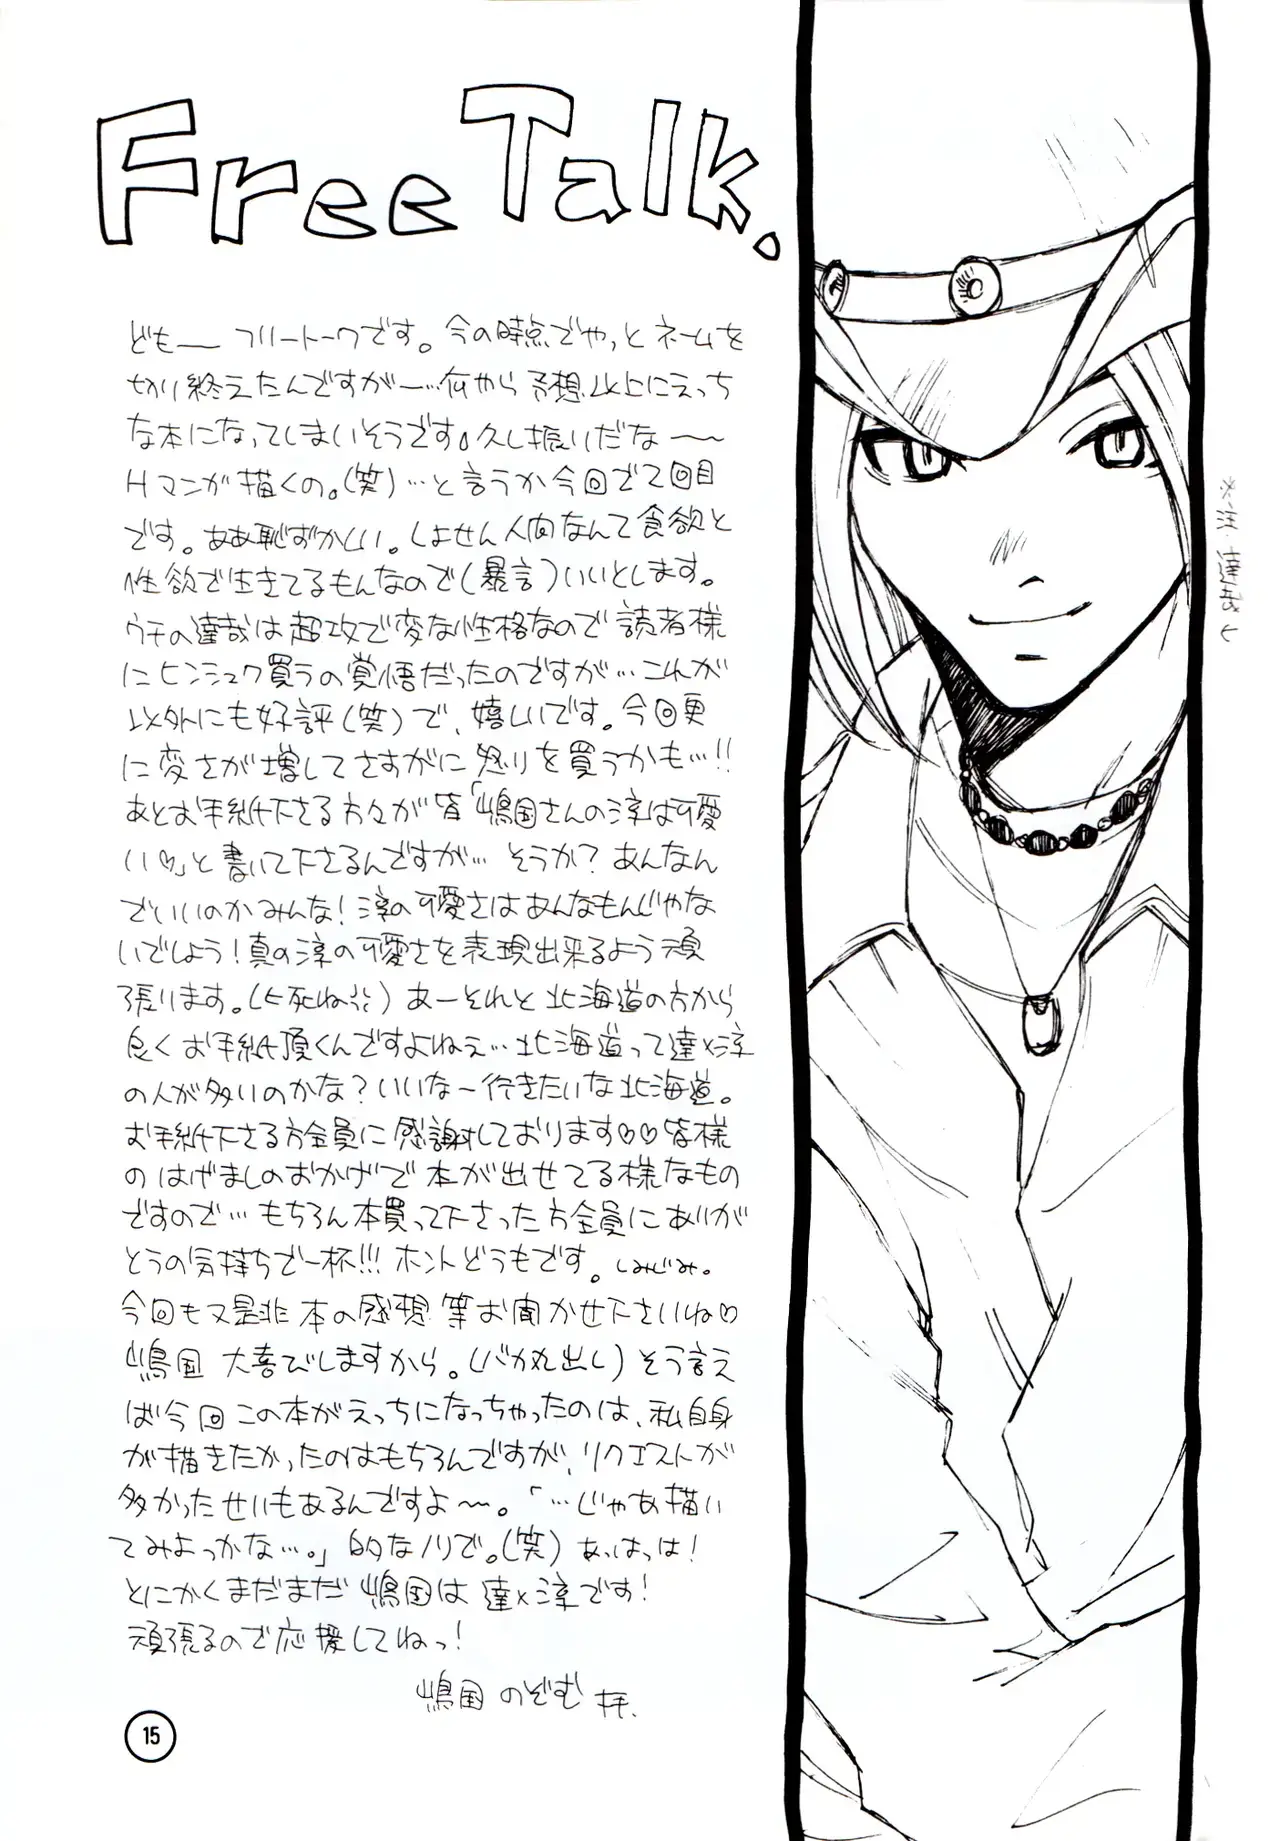 Free Talk.
どもー フリートークです。今の時点でやっとネームを
切り終えたんですがー…何やら予想以上にえっち
な本になってしまいそうです。久し振りだなー
Hマンガ描くの。(笑)…と言うか今回で2回目
です。ああ恥ずかしい。しょせん人間なんて食欲と
性欲で生きてるもんなので(暴言)いいとします。
ウチの達哉は超攻で変な性格なので読者様
にヒンシュク買うの覚悟だったのですが…これが
以外にも好評(笑)で、嬉しいです。今回更
に変さが増してさすがに怒りを買うかも…!!
あとお手紙下さる方々が皆「嶋国さんの淳は可愛
い♡」と書いて下さるんですが…そうか?あんなん
でいいのかみんな!淳の可愛さはあんなもんじゃな
いでしょう!真の淳の可愛さを表現出来るよう頑
張ります。(←死ね)あーそれと北海道の方から
良くお手紙頂くんですよねぇ…北海道って達×淳
の人が多いのかな?いいなー行きたいな北海道。
お手紙下さる方全員に感謝しております♡♡皆様
のはげましのおかげで本が出せてる様なもの
ですので…もちろん本買って下さった方全員にありが
とうの気持ちで一杯!!!ホントどうもです。しみじみ。
今回も又是非本の感想等お聞かせ下さいね♡
嶋国大喜びしますから。(バカ丸出し)そう言え
ば今回この本がえっちになっちゃったのは、私自身
が描きたかったのはもちろんですが、リクエストが
多かったせいもあるんですよ〜。「…じゃあ描い
てみよっかな…。」的なノリで。(笑)あっはっは!
とにかくまだまだ嶋国は達×淳です!
頑張るので応援してねっ!
嶋国のぞむ 拝.
15
※注・達哉